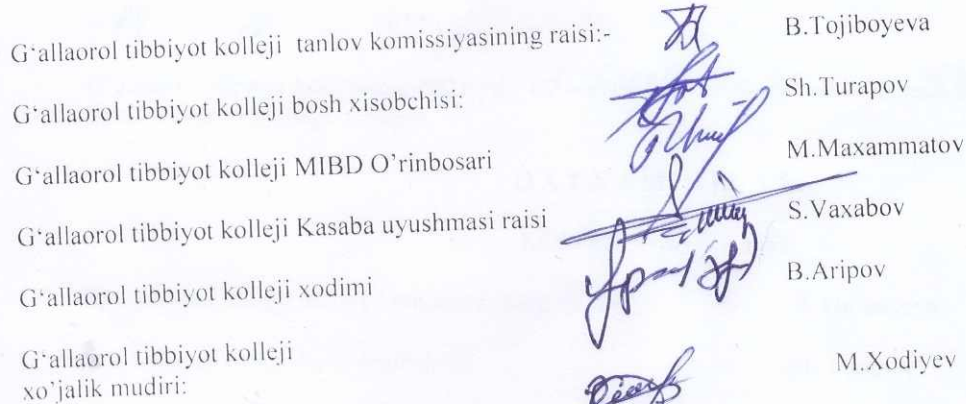 G‘allaorol tibbiyot kolleji tanlov komissiyasining raisi:- B.Tojiboyeva
G‘allaorol tibbiyot kolleji bosh xisobchisi: Sh.Turapov
G‘allaorol tibbiyot kolleji MIBD O’rinbosari M.Maxammatov
G‘allaorol tibbiyot kolleji Kasaba uyushmasi raisi S.Vaxabov
G‘allaorol tibbiyot kolleji xodimi B.Aripov
G‘allaorol tibbiyot kolleji
xo’jalik mudiri: M.Xodiyev